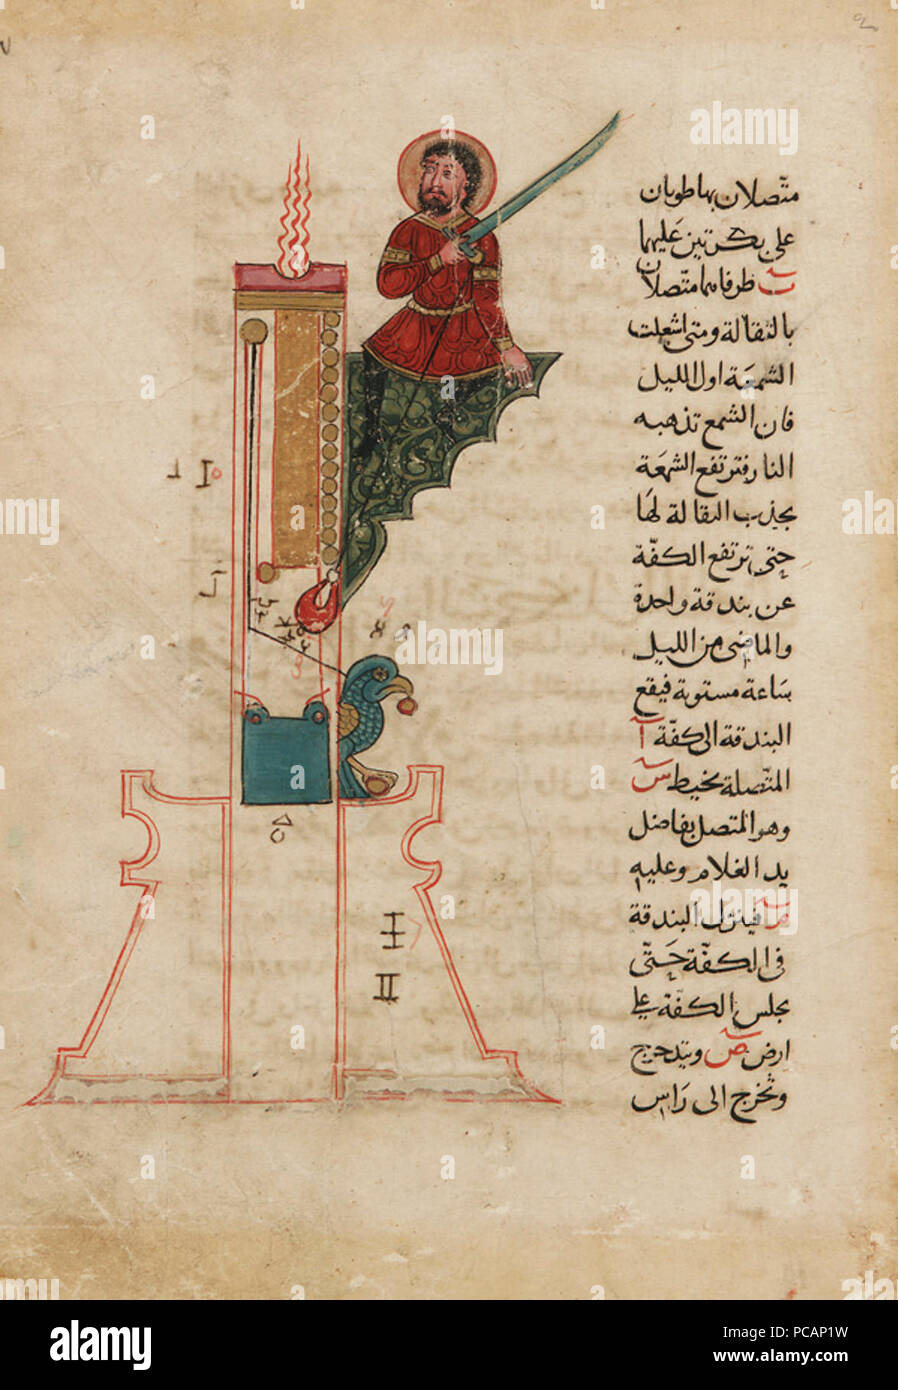 متّصلان بها طويان
على بكرتين عليهما
ظرفاهما متّصلان
بالثقالة ومتى اشعلت
الشمعة اول الليل
فان الشمع تذهبه
النار فترتفع الشمعة
بجذب الثقالة لها
حتى ترتفع الكفّة
عن بندقة واحدة
والماضى من الليل
ساعة مستوية فيقع
البندقة الى كفّة آ
المتّصلة بخيط س
وهو المتصل بفاضل
يد الغلام وعليه
فينزل البندقة
فى الكفّة حتّى
يجلس الكفّة على
ارض ص ويتدحرج
وتخرج الى راس
alamy
Image ID: PCAP1W
www.alamy.com